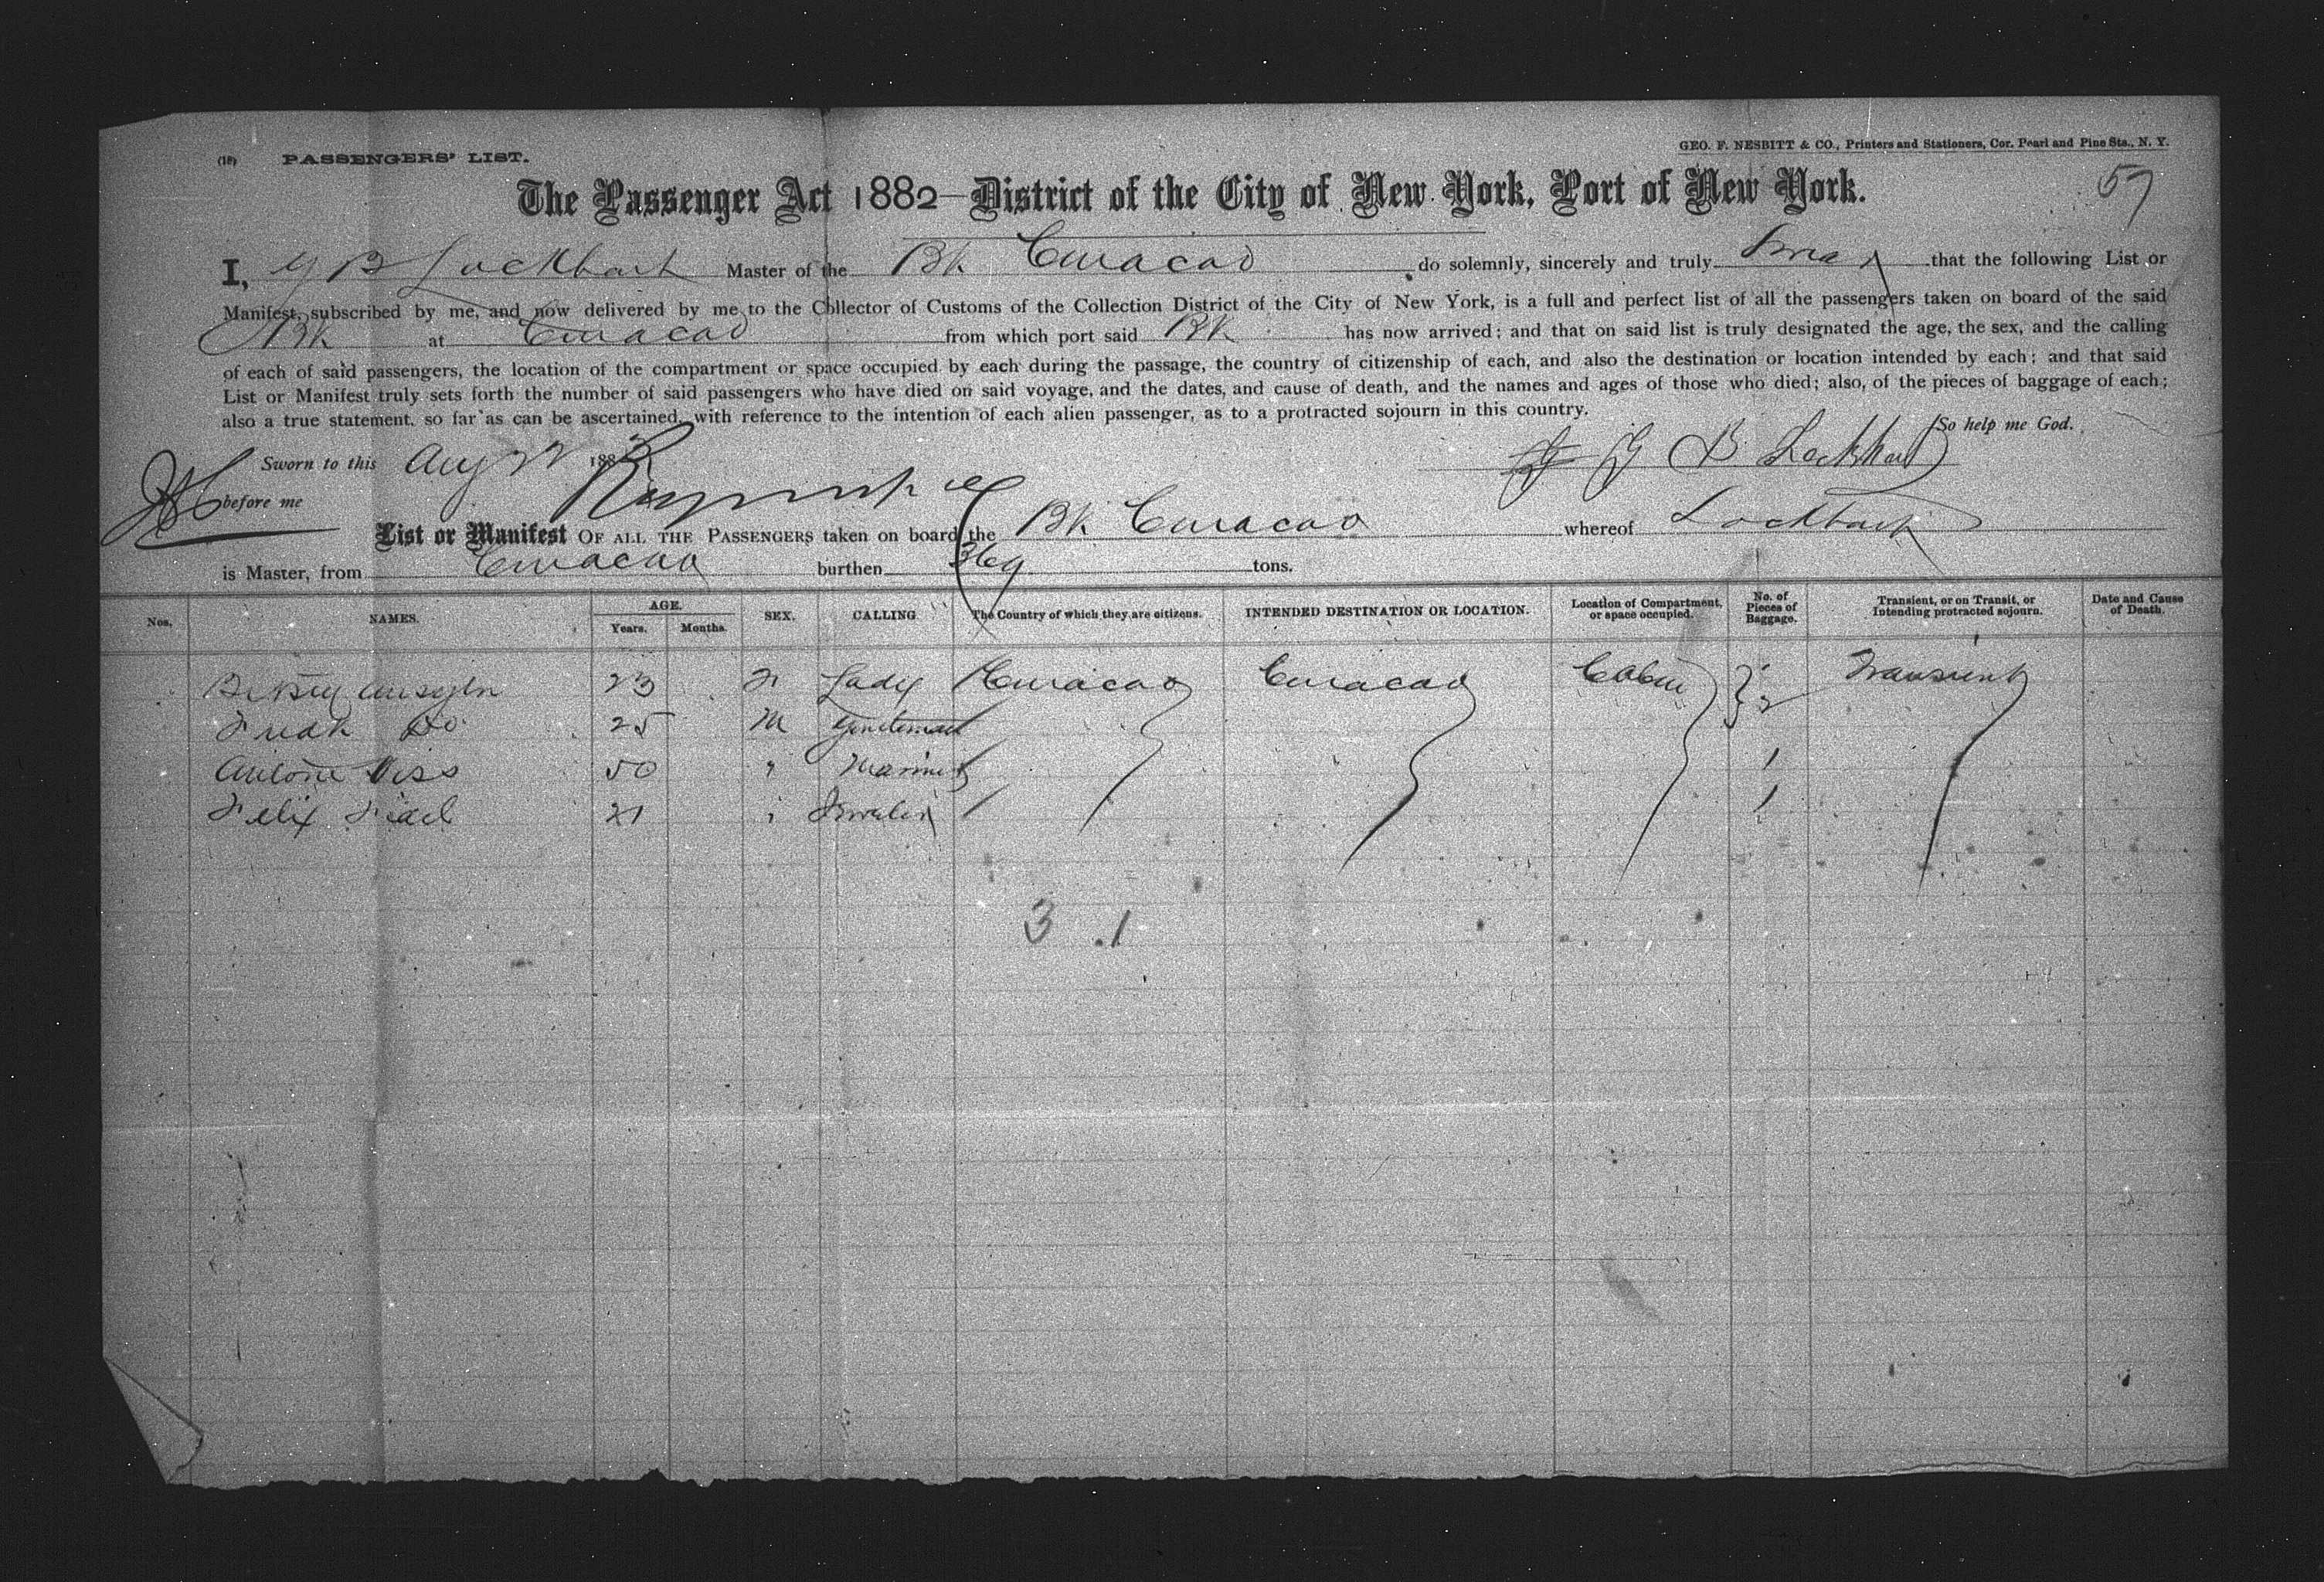 (18) PASSENGERS' LIST.
GEO. F. NESBITT & CO., Printers and Stationers, Cor. Pearl and Pine Sts., N. Y.
The Passenger Act 1882—District of the City of New York, Port of New York.
57
I, G B Lockhart Master of the Bk Curacao do solemnly, sincerely and truly Swear that the following List or
Manifest, subscribed by me, and now delivered by me to the Collector of Customs of the Collection District of the City of New York, is a full and perfect list of all the passengers taken on board of the said
Bk at Curacao from which port said Bk has now arrived; and that on said list is truly designated the age, the sex, and the calling
of each of said passengers, the location of the compartment or space occupied by each during the passage, the country of citizenship of each, and also the destination or location intended by each; and that said
List or Manifest truly sets forth the number of said passengers who have died on said voyage, and the dates, and cause of death, and the names and ages of those who died; also, of the pieces of baggage of each;
also a true statement, so far as can be ascertained, with reference to the intention of each alien passenger, as to a protracted sojourn in this country.
So help me God.
Sworn to this Aug 188
G B Lockhart
before me
List or Manifest OF ALL THE PASSENGERS taken on board the Bk Curacao whereof Lockhart
is Master, from Curacao burthen 369 tons.
Nos. NAMES. AGE. Years. Months. SEX. CALLING The Country of which they are citizens. INTENDED DESTINATION OR LOCATION. Location of Compartment, or space occupied. No. of Pieces of Baggage. Transient, or on Transit, or Intending protracted sojourn. Date and Cause of Death.
23 F Lady Curacao Curacao Cabin } 2 Transient
Do 25 M Gentleman
50 " Mariner 1
Felix 21 " 1
3 1